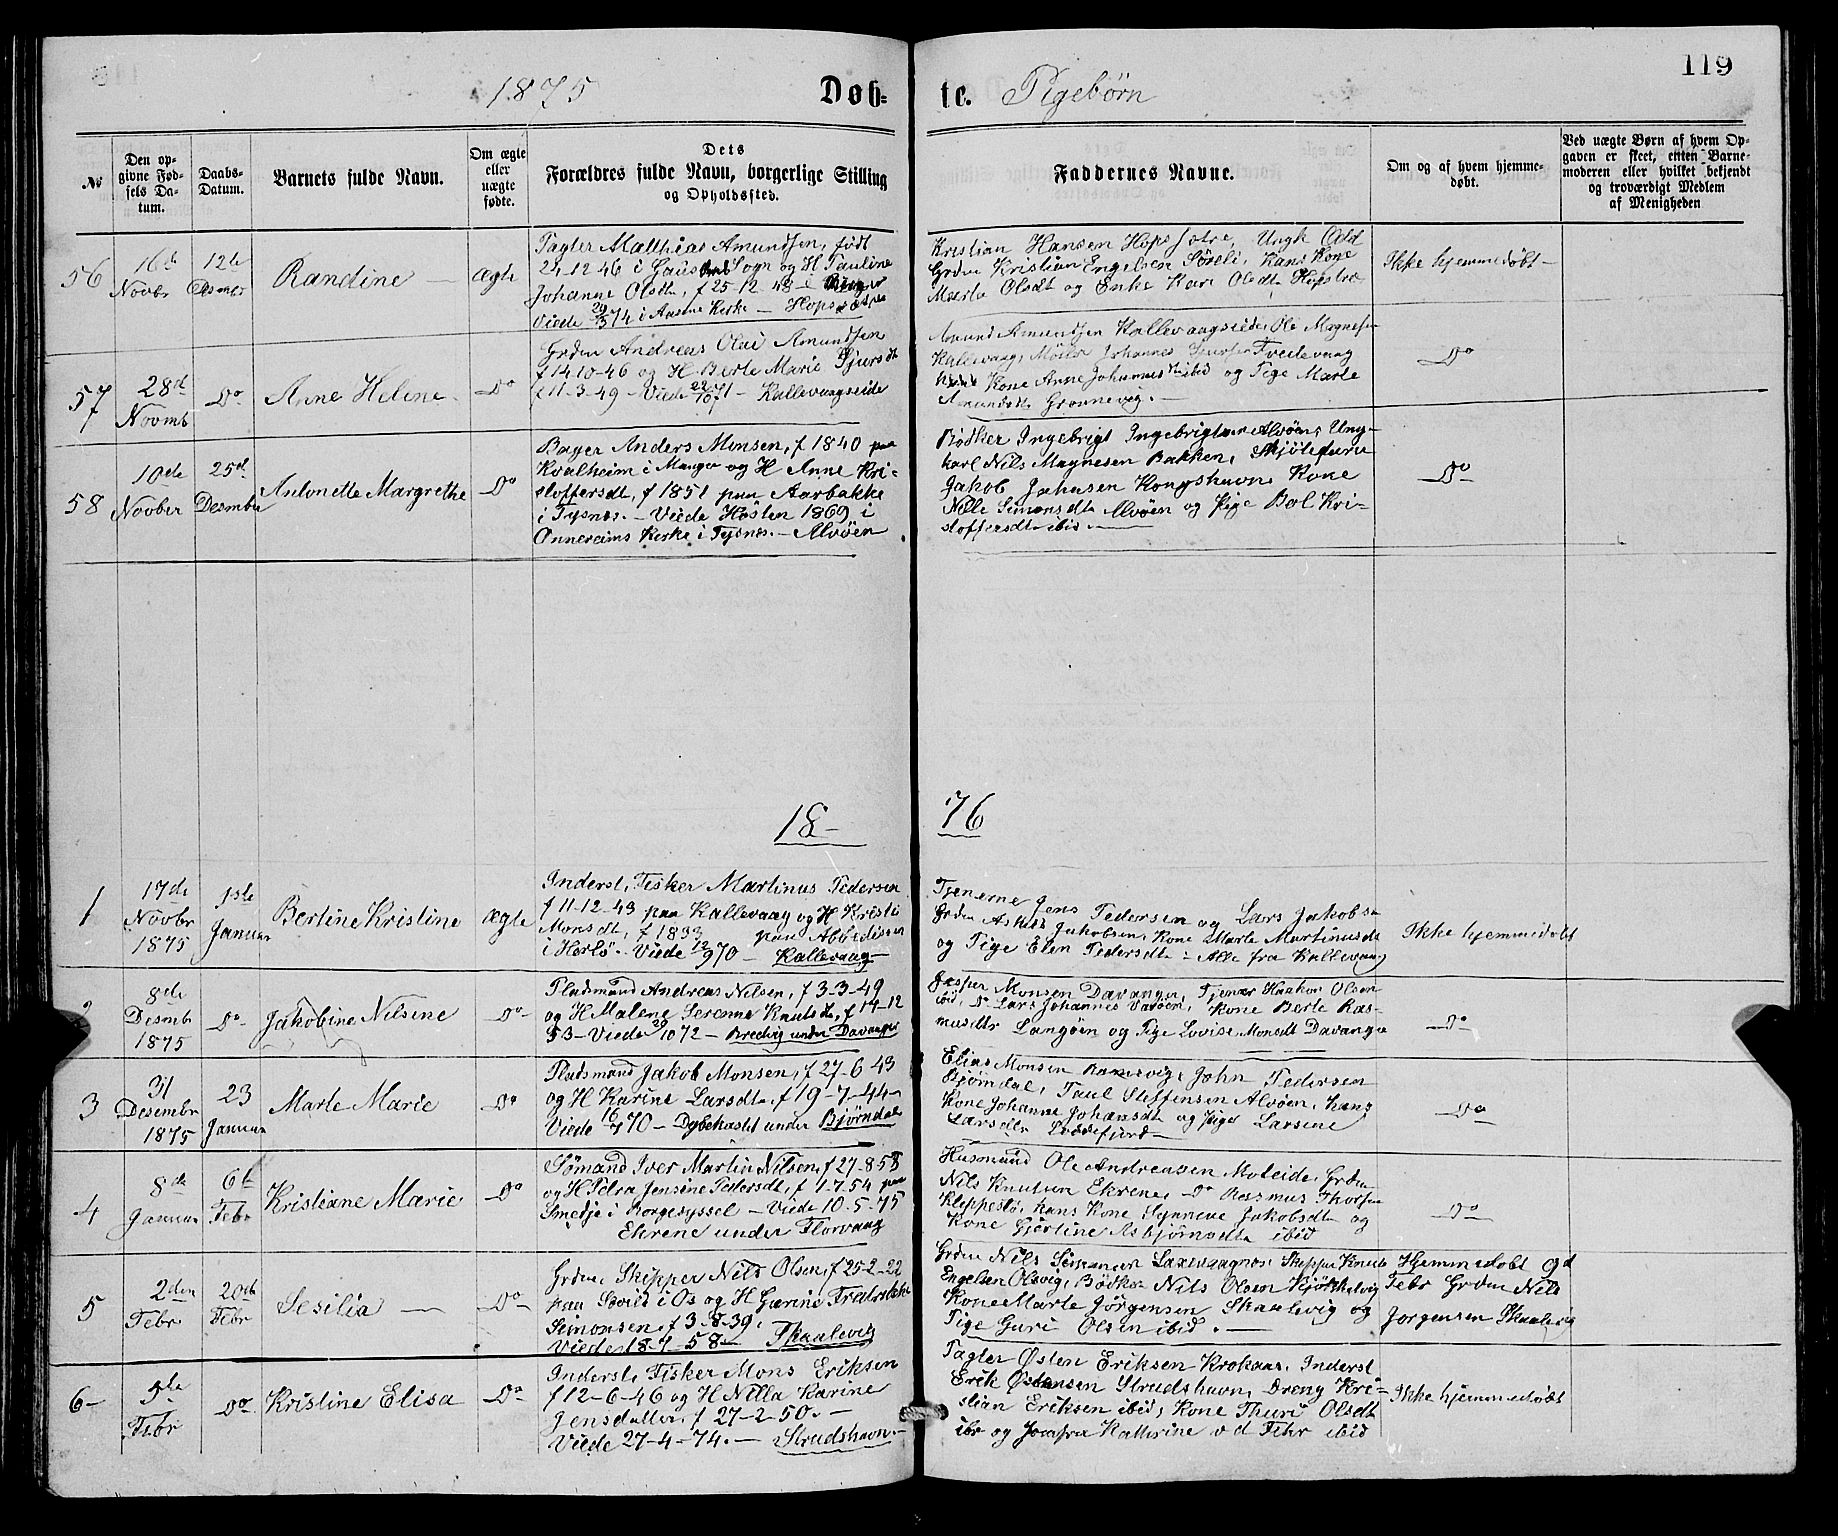 119
1875 Døb= te. Pigebørn
No
Den op-
givne Fød-
sels Da-
tum.
Daabs-
Datum.
Barnets fulde Navn.
Om ægte
eller
uægte
fødte.
Dets
Forældres fulde Navn, borgerlige Stilling
og Opholdssted.
Faddernes Navne.
Om og af hvem hjemme-
døbt.
Ved uægte Børn af hvem Op-
gaven er skeet, enten Barne-
moderen eller hvilket bekjendt
og troværdigt Medlem
af Menigheden
56
16de
Novbr
12te
Desmbr
Randine —
Ægte
Tagter Matthias Amundsen, født
24-12-46 i Sogn og H Pauline
Johanne Olsdt, f 25-12-48
Viede 74 i Kirke —
Kristian Hansen Ungk Odd
Grdm Kristian Engelsen Søreli, Hans Kone
Marte Olsdt og Enke Kari Olsdt
Ikke hjemmedøbt —
57
28de
Novmb
Do
Anne Helene
Do
Grdm Andreas Olai Amundsen
f 14-10-46 og H Berte Marie Sjursdt
f 11-3-49 — Viede 71 — Kallevaagseide
Amund Amundsen Kallevaagseide, Ole Magnesen
Kallevaag, Møller Johannes Fredevaag
Kone Anne Johannesdt ibid og Pige Marte
Amundsdt
Do
58
10de
Novber
25de
Desmber
Antonette Margrethe
Do
Bager Anders Monsen, f 1840 paa
Kvalheim i Manger og H Anne Kri-
stoffersdt, f 1851 paa Aarbakke
i Tysnes. — Viede Høsten 1869 i
Onnereims Kirke i Tysnes. — Alvøen
Bødker Ingebrigt Ingebrigtsen Alvøen, Ung-
karl Nils Magnesen Bakken,
Jakob Johnsen Kongshavn, Kone
Nille Simonsdt Alvøen og Pige Bol Kri-
stoffersdt ibid —
Do
18— 76
1
17de
Novbr
1875
1ste
Januar
Bertine Kristine
Ægte
Inderst, Fisker Martinus Pedersen
f 11-12-43 paa Kallevaag og H Kristi
Monsdt, f 1833 paa
i Herlø. Viede 70 — Kallevaag
Tjenerne Jens Pedersen og Lars Jakobsen
Grdm Jakobsen, Kone Marte Martinusdt
og Pige Elen Pedersdt — Alle fra Kallevaag
Ikke hjemmedøbt
2
8de
Desmb
1875
Do
Jakobine Nilsine
Do
Pladsmand Andreas Nilsen, f 3-3-49
og H Malene Serene Knutsdt, f 14-12
53 — Viede 10 72 — Bredvig under Davanger
Jesper Monsen Davanger, Tjener Haakon Olsen
ibid, Do Lars Johannes Varøen, Kone Berte Ras-
musdtr Langøen og Pige Lovise Monsdt Davanger
Do
3
31
Desembr
1875
23
Januar
Marte Marie
Do
Pladsmand Jakob Monsen, f 27-6-43
og H Karine Larsdt, f 19-7-44
Viede 16/7 70 — under Bjørndal
Elias Monsen John Pedersen
Bjørndal, Paul Steffensen Alvøen, Hans
Kone Johanne Johansdt og Pige Larsine
Larsdtr Loddefjord —
Do
4
8de
Januar
6te
Febr
Kristiane Marie
Do
Sømand Iver Martin Nilsen, f 27-8-53
og H Petra Jensine Pedersdt, f 1-7-54 paa
Smedje i Borgesyssel — Viede 10-5-75
Ekrene under Florvaag
Husmand Ole Andreassen Moteide, Grdm
Nils Knutsen Ekrene, Do Rasmus Thorsen
Kleppestø, Hans Kone Synneve Jakobsdt og
Kone Gjertine Asbjørnsdt ibid
Do
5
2den
Febr
20de
Febr
Sesilia —
Do
Grdm, Skipper Nils Olsen, f 25-2-22
paa i Os og H Gærine Fredrikke
Simonsen, f 3-8-39.
Viede 18-7-58 — Skaalevig
Grdm Nils Simonsen Skipper Knut
Engelsen Olsvig, Bødker Nils Olsen
Kone Marte Jørgensen Skaalevig og
Pige Guri Olsen ibid. —
Hjemmedøbt
Febr Grdm Nils
Jørgensen Skaalevig
6
5te
Febr
Do
Kristine Elisa
Do
Inderste Fisker Mons Eriksen
f 12-6-46 og H Nilla Karine
Jensdatter, f 27-2-50. —
Viede 27-4-74. — Strudshavn —
Tagter Østen Eriksen Krokaas, Inderst
Erik Østensen Strudshavn, Dreng Kri-
stian Eriksen ibid, Kone Thuri Olsdt
ibr og Jomfru Kathrine v d Fehr ibid
Ikke hjemmedøbt